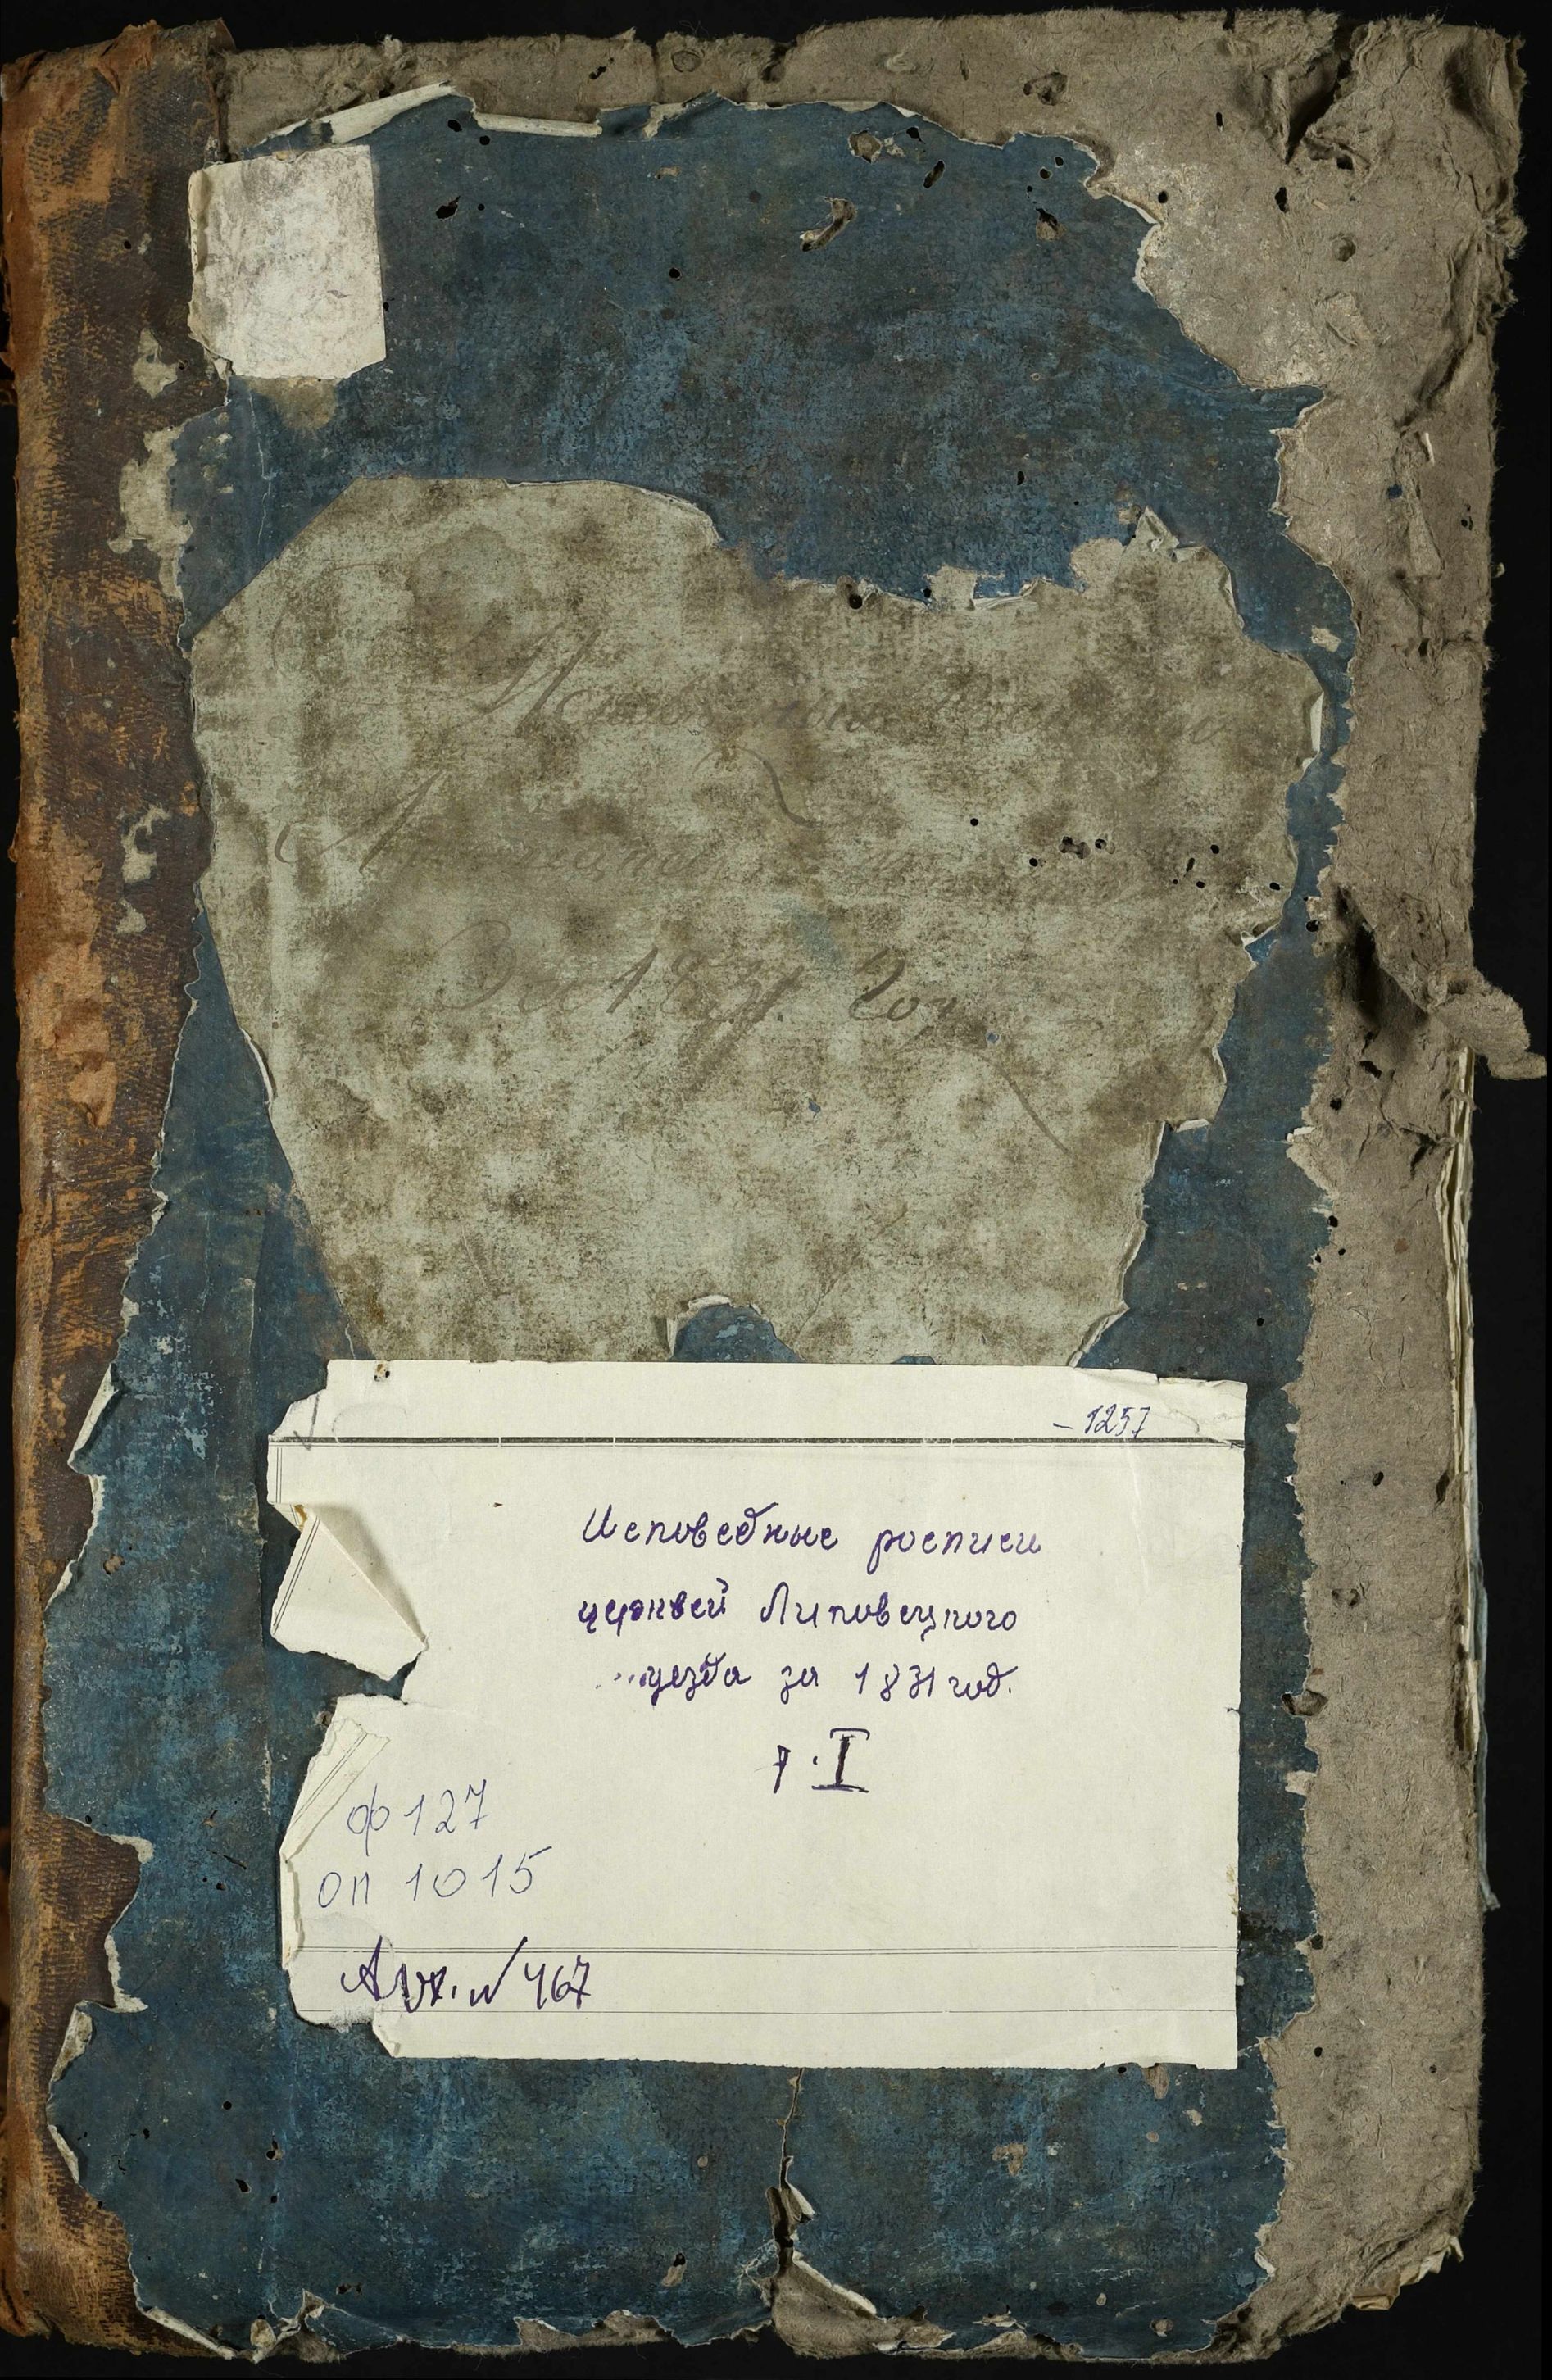 За 1831 год
– 1257
Исповедные росписи
церквей Липовецкого
уезда за 1831 год.
т. I
ф 127
оп 1015
Арх. № 467